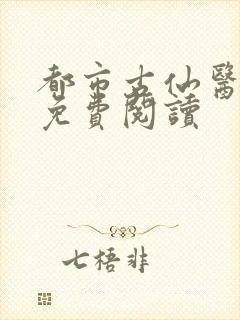 都市古仙醫
免費閱讀
七梧非